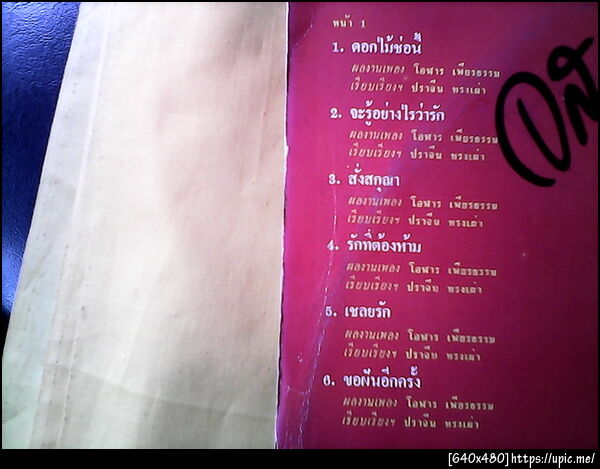 หน้า 1
1. ดอกไม้ช่อนี้
ผลงานเพลง โอฬาร เพียรธรรม
เรียบเรียงฯ ปราจีน ทรงเผ่า
2. จะรู้อย่างไรว่ารัก
ผลงานเพลง โอฬาร เพียรธรรม
เรียบเรียงฯ ปราจีน ทรงเผ่า
3. สั่งสกุณา
ผลงานเพลง โอฬาร เพียรธรรม
เรียบเรียงฯ ปราจีน ทรงเผ่า
4. รักที่ต้องห้าม
ผลงานเพลง โอฬาร เพียรธรรม
เรียบเรียงฯ ปราจีน ทรงเผ่า
5. เชลยรัก
ผลงานเพลง โอฬาร เพียรธรรม
เรียบเรียงฯ ปราจีน ทรงเผ่า
6. ขอฝันอีกครั้ง
ผลงานเพลง โอฬาร เพียรธรรม
เรียบเรียงฯ ปราจีน ทรงเผ่า
[640x480]https://upic.me/